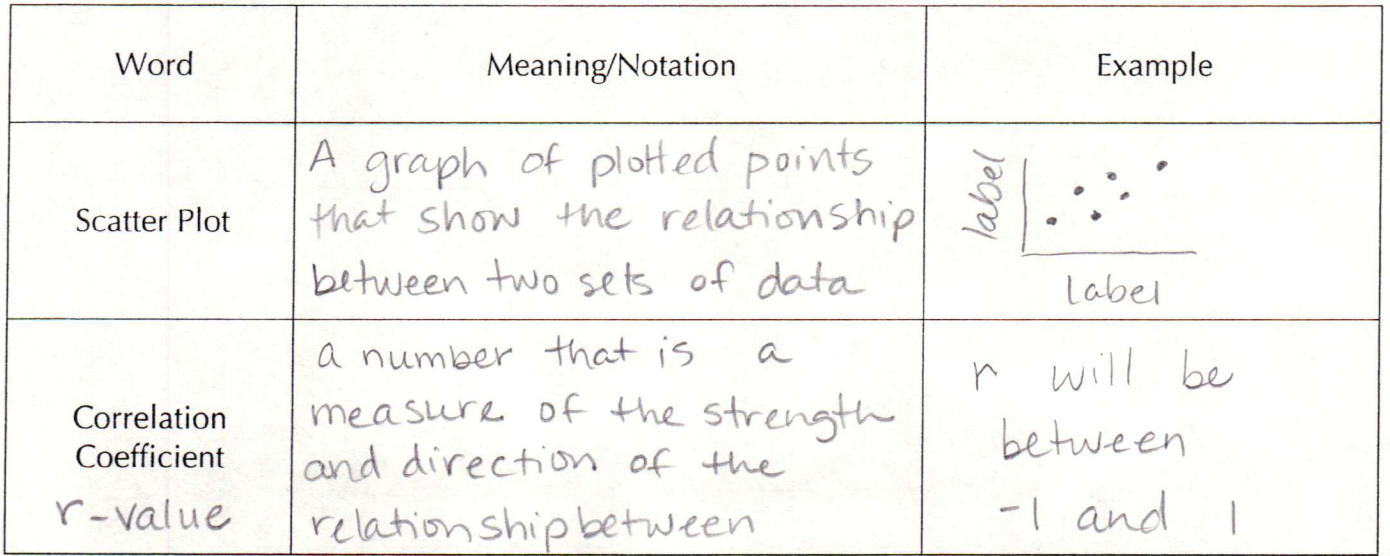 Word
Meaning/Notation
Example
Scatter Plot
A graph of plotted points
that show the relationship
between two sets of data
label
label
Correlation
Coefficient
r-value
a number that is a
measure of the strength
and direction of the
relationship between
r will be
between
-1 and 1